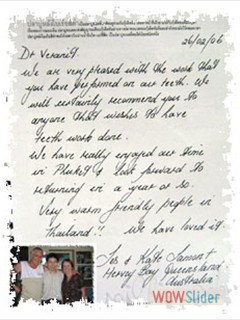 26/02/06
Dr Veerani?
We are very pleased with the work that
you have performed on our teeth. We
will certainly recommend you to
anyone that wishes to have
teeth work done.
We have really enjoyed our time
in Phuket & look forward to
returning in a year or so.
Very warm friendly people in
Thailand!! We have loved it
Les & Kate
Hervey Bay Queensland
Australia
WOWSlider